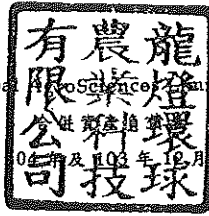 龍燈環球
農業科技
有限公司
oSciences
年及 103 年
月